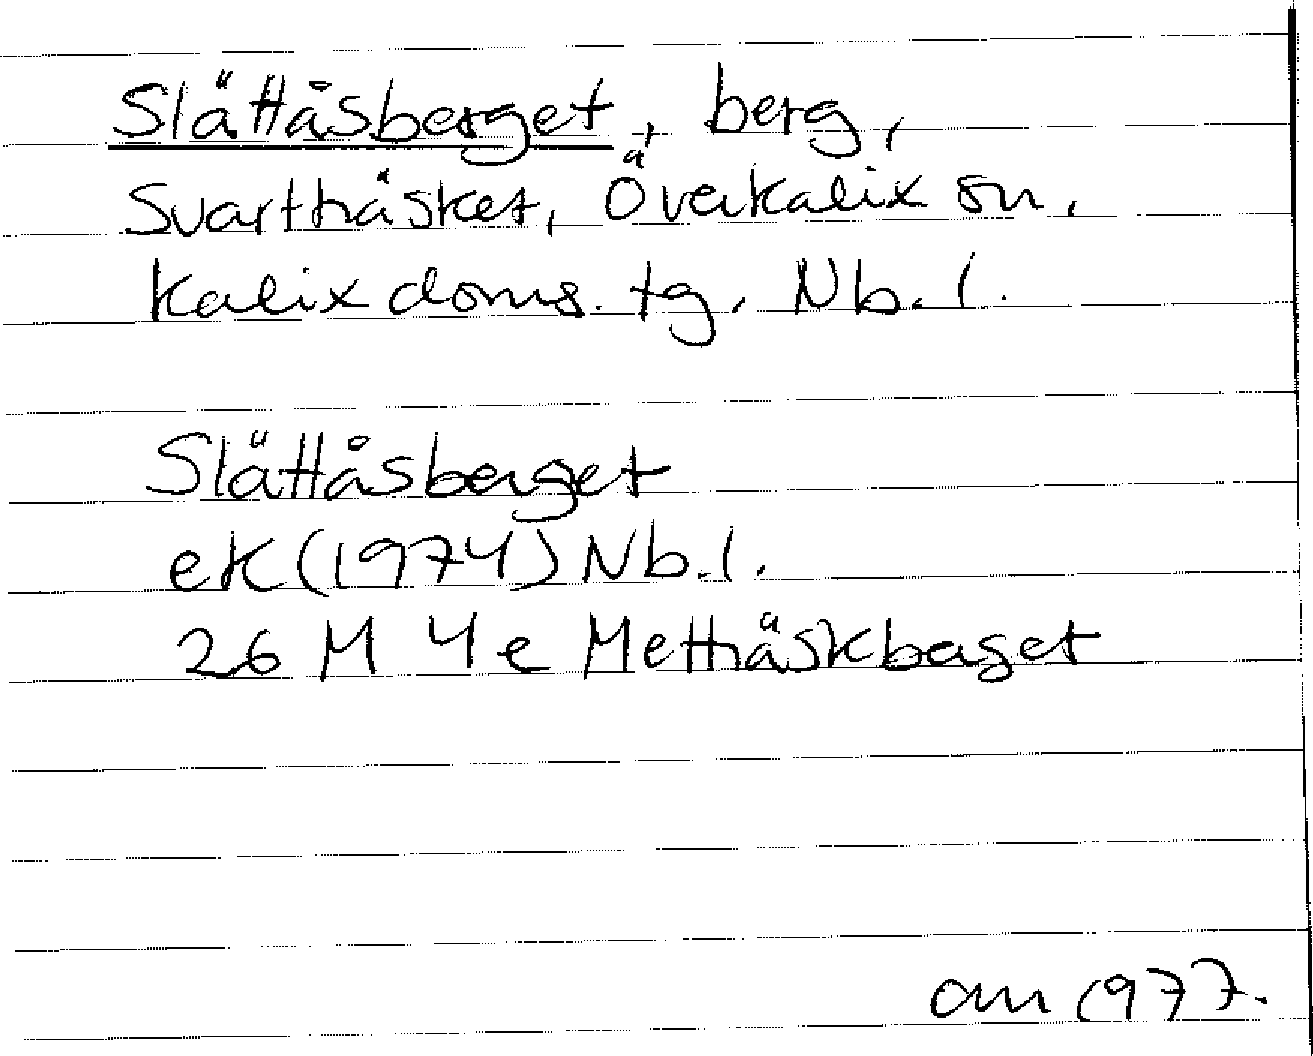 Slättåsberget, berg,
Svartträsket, Överkalix sn,
Kalix doms. tg, Nb. l.
Slättåsberget
ek (1974) Nb. l.
26 M 4e Metträskberget
am 1977.